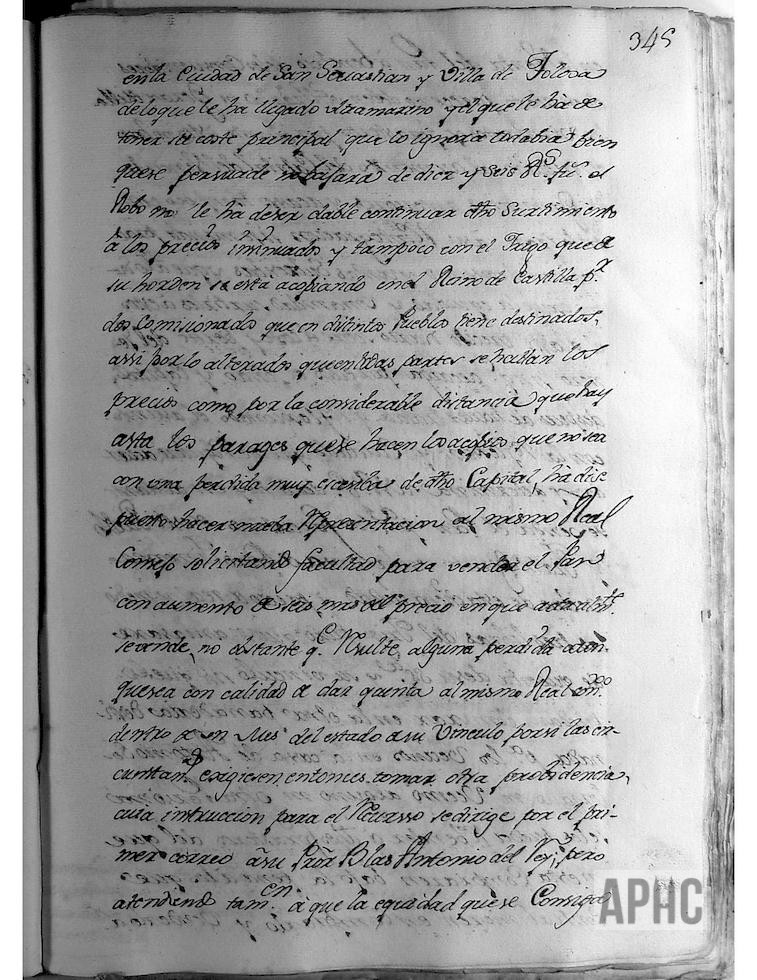 345
en la Ciudad de San Sevastian y Villa de Tolosa
de lo que le ha llegado ultramarino y el que le hà de
tener de coste principal que lo ignora todabia bien
que se persuade no bajara de diez y seis R.s f.s el
Robo no le ha de ser dable continuar dho Surtimiento
à los precios insinuados y tampoco con el Trigo que de
su horden se esta acopiando en el Reino de Castilla p.r
dos Comisionados que en distintos Pueblos tiene destinados,
assi por lo alterados que en todas partes se hallan los
precios como por la considerable distancia que hay
asta los parages que se hacen los acopios que no sea
con una perdida muy crecida de dho Capital, hà dis
puesto hacer nueba Representacion al mismo Real
Consejo solicitando facultad para vender el Pan
con aumento de seis mrs del precio en que actualm.te
se vende, no obstante q.e Resulte alguna perdida aun
que sea con calidad de dar quenta al mismo Real con.o
dentro de un mes del estado de su Vinculo por si las cir-
cunstan.s exigiesen entonces tomar otra probidencia,
cuia instruccion para el Recurso se dirige por el pri-
mer correo à su Pròr Blas Antonio del Rey; pero
atendiendo tam.en à que la equidad que se Consiga
APHC